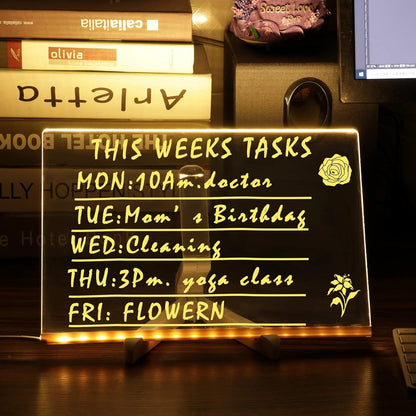 callaitalica
Sweet Love
olivia
Arletta
THE HOTEL BOOK
THIS WEEKS TASKS
MON:10Am.doctor
TUE:Mom's Birthdag
WED:Cleaning
THU:3Pm. yoga class
FRI: FLOWERN